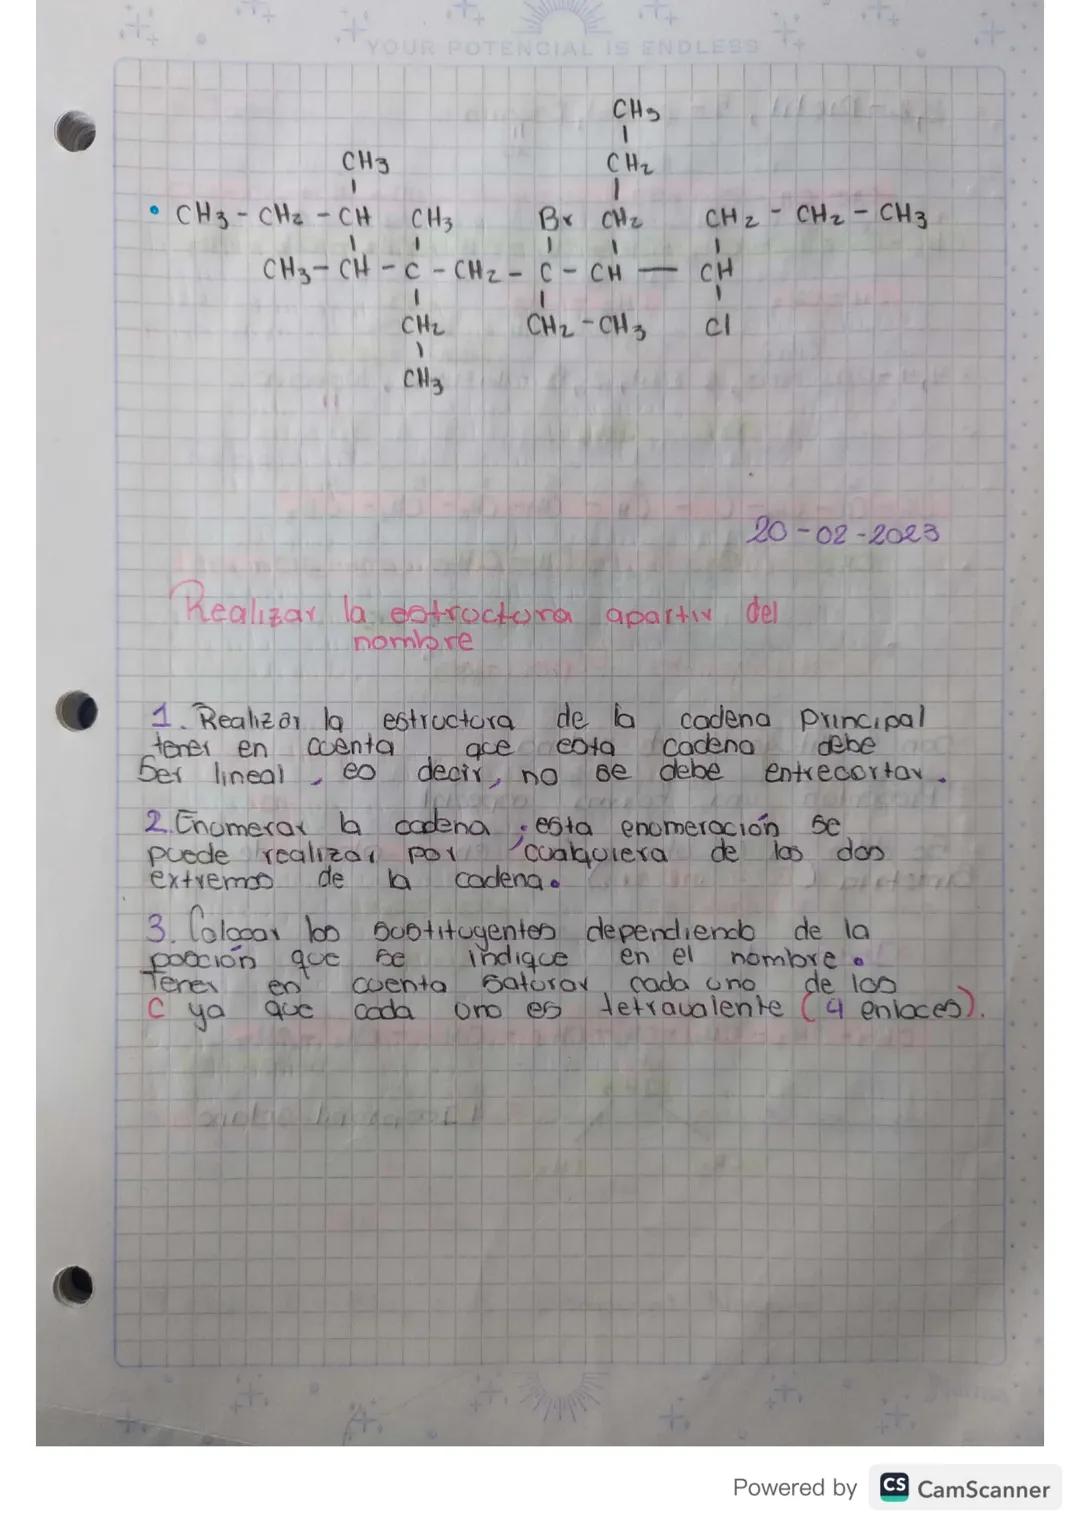 YOUR POTENCIAL IS ENDLESS
CH3
CH3 CH2
• CH3 - CH2 - CH CH3 Br CH2 CH2 - CH2 - CH3
CH3 - CH - C - CH2 - C - CH — CH
CH2 CH2 - CH3 Cl
CH3
20-02-2023
Realizar la estructura apartir del
nombre
1. Realizar la estructura de la cadena principal
tener en cuenta que esta cadena debe
ser lineal, es decir, no se debe entrecortar.
2. Enumerar la cadena; esta enumeración se
puede realizar por cualquiera de los dos
extremos de la cadena.
3. Colocar los sustituyentes dependiendo de la
posición que se indique en el nombre.
Tener en cuenta saturar cada uno de los
C ya que cada uno es tetravalente (4 enlaces).
Powered by CS CamScanner